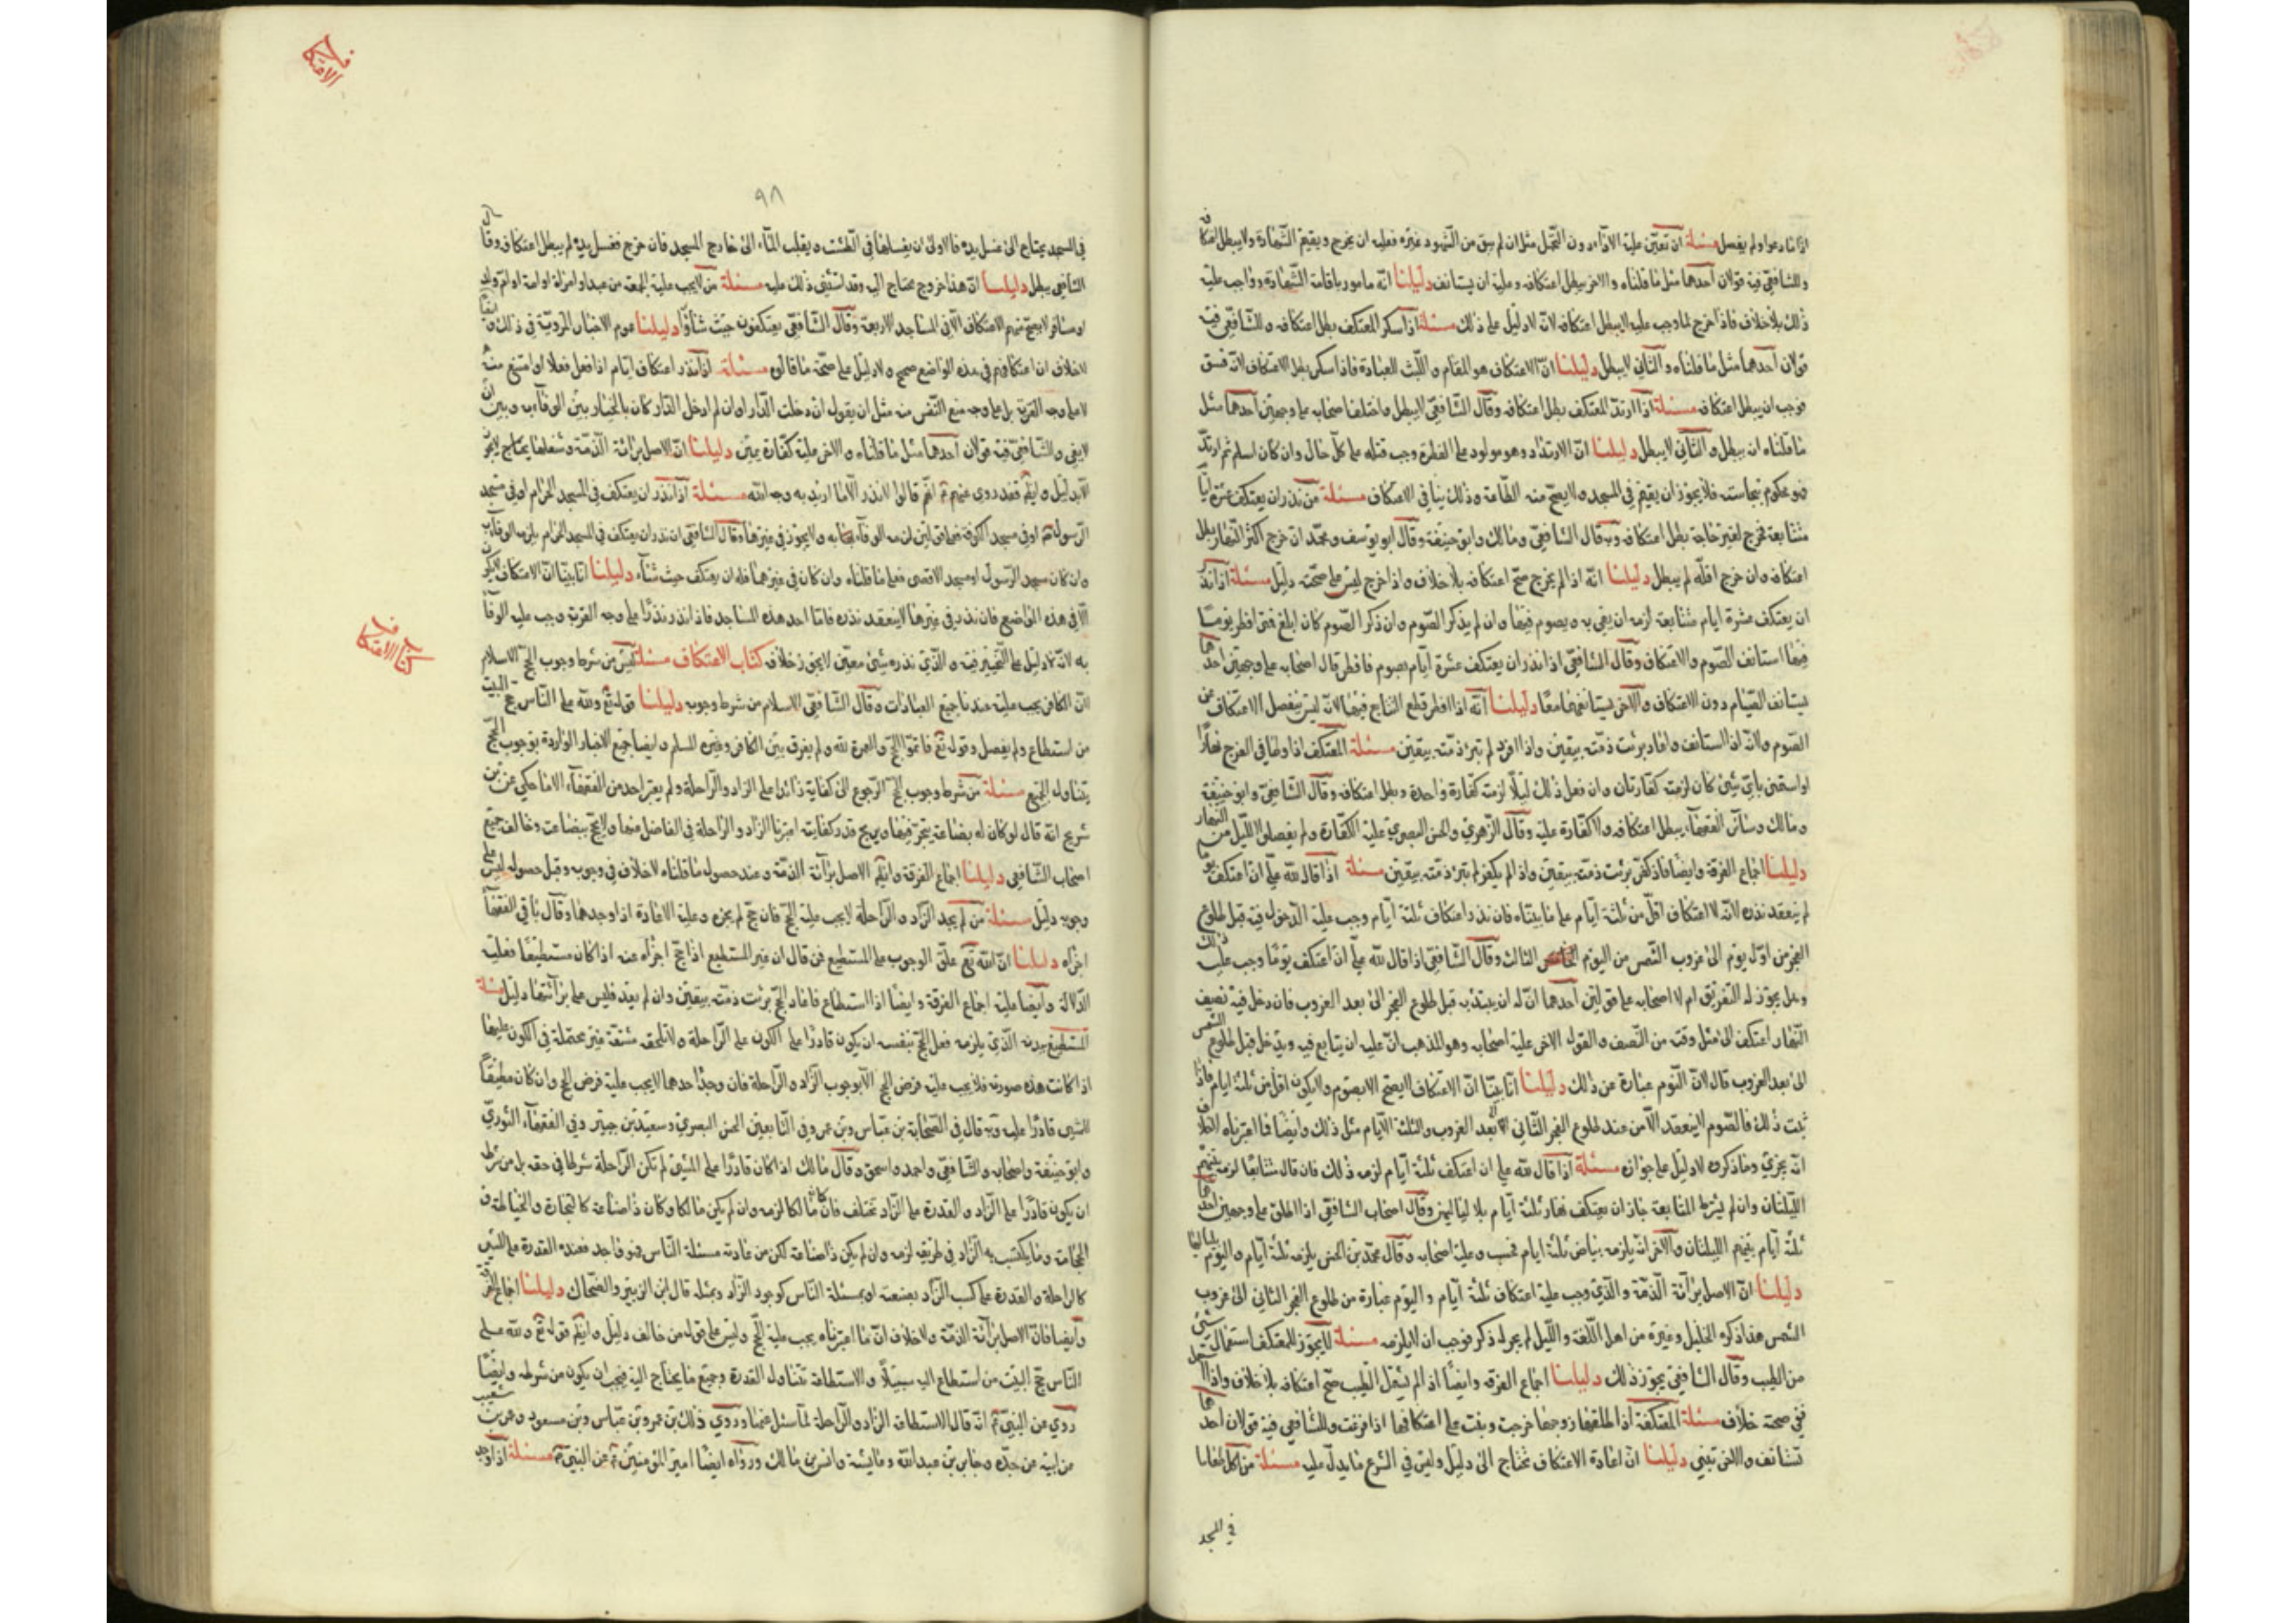 اذا ما دعوا ولم يفصل مسئلة ان تعيّن عليه الاداء دون التحمل مثل ان لم يبق من الشهود غيره فعليه ان يخرج ويقيم الشهادة ولا يبطل اعتكافه
وللشافعي فيه قولان احدهما مثل ما قلناه والاخر يبطل اعتكافه وعليه ان يستانف دليلنا انه مامور باقامة الشهادة وواجب عليه
ذلك بلا خلاف فاذا خرج لما وجب عليه لا يبطل اعتكافه لانه لا دليل على ذلك مسئلة اذا سكر المعتكف بطل اعتكافه وللشافعي فيه
قولان احدهما مثل ما قلناه والثاني لا يبطل دليلنا ان الاعتكاف هو المقام واللبث للعبادة فاذا سكر بطل الاعتكاف لانه فسق
فوجب ان يبطل اعتكافه مسئلة اذا ارتد المعتكف بطل اعتكافه وقال الشافعي لا يبطل واختلف اصحابه على وجهين احدهما مثل
ما قلناه انه يبطل والثاني لا يبطل دليلنا ان الارتداد وهو مولود على الفطرة وجب قتله على كل حال وان كان اسلم ثم ارتد
فهو محكوم بنجاسته فلا يجوز ان يقيم في المسجد ولا يصح منه الطاعة وذلك ينافي الاعتكاف مسئلة من نذر ان يعتكف عشرة ايام
متتابعة فخرج لغير حاجة بطل اعتكافه وبه قال الشافعي ومالك وابو حنيفة وقال ابو يوسف ومحمد ان خرج اكثر النهار بطل
اعتكافه وان خرج اقله لم يبطل دليلنا انه اذا لم يخرج صح اعتكافه بلا خلاف واذا خرج ليس على صحته دليل مسئلة اذا نذر
ان يعتكف عشرة ايام متتابعة لزمه ان يفي به ويصوم فيها وان لم يذكر الصوم وان ذكر الصوم كان ابلغ فمتى افطر يوما
فيها استانف الصوم والاعتكاف وقال الشافعي اذا نذر ان يعتكف عشرة ايام بصوم فافطر قال اصحابه على وجهين احدهما
يستانف الصيام دون الاعتكاف والاخر يستانفهما معا دليلنا انه اذا افطر قطع التتابع فيهما لانه ليس ينفصل الاعتكاف من
الصوم ولانه اذا استانف وافاد برئت ذمته بيقين واذا افرد لم تبرء ذمته بيقين مسئلة المعتكف اذا وطئ في الفرج نهارا
او استمنى باي شيئ كان لزمته كفارتان وان فعل ذلك ليلا لزمته كفارة واحدة وبطل اعتكافه وقال الشافعي وابو حنيفة
ومالك وسائر الفقهاء يبطل اعتكافه ولا كفارة عليه وقال الزهري والحسن البصري عليه الكفارة ولم يفصلوا الليل من النهار
دليلنا اجماع الفرقة وايضا فاذا كفر برئت ذمته بيقين واذا لم يكفر لم تبرء ذمته بيقين مسئلة اذا قال لله علي ان اعتكف يوما
لم ينعقد نذره لانه لا اعتكاف اقل من ثلثة ايام على ما بيناه فان نذر اعتكاف ثلثة ايام وجب عليه الدخول فيه قبل طلوع
الفجر من اول يوم الى غروب الشمس من اليوم الثالث وقال الشافعي اذا قال لله علي ان اعتكف يوما وجب عليه ذلك
وهل يجوز له التفريق ام لا اصحابه على قولين احدهما ان له ان يبتدء به قبل طلوع الفجر الى بعد الغروب فان دخل فيه نصف
النهار اعتكف الى مثل وقته من النصف والقول الاخر عليه اصحابه وهو المذهب ان عليه ان يتابع فيه ويدخل قبل طلوع الشمس
الى بعد الغروب قال لان اليوم عبارة عن ذلك دليلنا انا بينا ان الاعتكاف لا يصح الا بصوم ولا يكون اقل من ثلثة ايام فاذا
ثبت ذلك فالصوم لا ينعقد الا من عند طلوع الفجر الثاني الى بعد الغروب والثلثة الايام مثل ذلك وايضا فما اعتبرناه لا خلاف
انه يجزئ وما ذكروه لا دليل على جوازه مسئلة اذا قال لله علي ان اعتكف ثلثة ايام لزمه ذلك فان قال متتابعا لزمه بينهم
الليلتان وان لم يشرط المتابعة جاز ان يعتكف نهار ثلثة ايام بلا لياليهن وقال اصحاب الشافعي اذا اطلق على وجهين احدهما
ثلثة ايام بينهم الليلتان والاخر انه يلزمه بياض ثلثة ايام فحسب وعليه اصحابه وقال محمد بن الحسن يلزمه ثلثة ايام ولياليها
دليلنا ان الاصل براءة الذمة والذي وجب عليه اعتكاف ثلثة ايام واليوم عبارة من طلوع الفجر الثاني الى غروب
الشمس هذا ذكره الخليل وغيره من اهل اللغة والليل لم يجر له ذكر فوجب ان لا يلزمه مسئلة لا يجوز للمعتكف استعمال شيئ
من الطيب وقال الشافعي يجوز ذلك دليلنا اجماع الفرقة وايضا اذا لم يستعمل الطيب صح اعتكافه بلا خلاف واذا استعمل
ففي صحته خلاف مسئلة المعتكفة اذا طلقها زوجها خرجت وبنت على اعتكافها اذا فرغت وللشافعي فيه قولان احدهما
تستانف والاخر تبني دليلنا ان اعادة الاعتكاف تحتاج الى دليل وليس في الشرع ما يدل عليه مسئلة من اكل طعاما
في المسجد
٩٨
في المسجد يحتاج الى غسل يديه فالاولى ان يغسلها في الطشت ويقلب الماء الى خارج المسجد فان خرج فغسل يديه لم يبطل اعتكافه وقال
الشافعي يبطل دليلنا ان هذا خروج محتاج اليه وقد استثنى ذلك عليه مسئلة من لا يجب عليه الجمعة من عبد او امراة او امة او ولد
او مسافر لا يصح منهم الاعتكاف الا في المساجد الاربعة وقال الشافعي يعتكفون حيث شاؤا دليلنا عموم الاخبار المروية في ذلك وايضا
لا خلاف ان اعتكافهم في هذه المواضع صحيح ولا دليل على صحة ما قالوه مسئلة اذا نذر اعتكاف ايام اذا فعل فعلا او امتنع منه
لا على وجه القربة بل على وجه منع النفس منه مثل ان يقول ان دخلت الدار او ان لم ادخل الدار كان بالخيار بين الوفاء به وبين ان
لا يفي وللشافعي فيه قولان احدهما مثل ما قلناه والاخر عليه كفارة يمين دليلنا ان الاصل براءة الذمة وشغلها يحتاج
الى دليل وايضا فقد روي عنهم انهم قالوا لا نذر الا ما اريد به وجه الله مسئلة اذا نذر ان يعتكف في المسجد الحرام او في مسجد
الرسول او في مسجد الكوفة لزمه الوفاء به ولا يجوز في غيرها وقال الشافعي ان نذر ان يعتكف في المسجد الحرام يلزمه الوفاء به
وان كان مسجد الرسول او مسجد الاقصى فعلى ما قلناه وان كان في غيرهما فله ان يعتكف حيث شاء دليلنا انا بينا ان الاعتكاف لا يكون
الا في هذه المواضع فان نذر في غيرها لا ينعقد نذره فاما احد هذه المساجد فاذا نذر نذرا على وجه القربة وجب عليه الوفاء
به لانه لا دليل على التخيير فيه والذي نذره شيئ معين لا يجوز خلافه كتاب الاعتكاف مسئلة ليس من شرط وجوب الحج الاسلام
لان الكافر يجب عليه عندنا جميع العبادات وقال الشافعي الاسلام من شرط وجوبه دليلنا قوله تع ولله على الناس حج البيت
من استطاع ولم يفصل وقوله تع فاتموا الحج والعمرة لله ولم يفرق بين الكافر وغيره المسلم وايضا جميع الاخبار الواردة بوجوب الحج
يتناول الجميع مسئلة من شرط وجوب الحج الرجوع الى كفاية زائدا على الزاد والراحلة ولم يعتبر احد من الفقهاء الا ما حكي عن بن
شريح انه قال لو كان له بضاعة يتجر فيها ويربح قدر كفايته اعتبرنا الزاد والراحلة في الفاضل منها ولا يحج ببضاعته وخالف جميع
اصحاب الشافعي دليلنا اجماع الفرقة وايضا الاصل براءة الذمة وعند حصول ما قلناه لا خلاف في وجوبه وقبل حصوله ليس على
وجوبه دليل مسئلة من لم يجد الزاد والراحلة لا يجب عليه الحج فان حج لم يجزه وعليه الاعادة اذا وجدهما وقال باقي الفقهاء
اجزاه دليلنا ان الله تع علق الوجوب على المستطيع فمن قال ان غير المستطيع اذا حج اجزاه عنه اذا كان مستطيعا فعليه
الدلالة وايضا عليه اجماع الفرقة وايضا اذا استطاع فاعاد الحج برئت ذمته بيقين وان لم يعد فليس على براءتها دليل مسئلة
المستطيع ببدنه الذي يلزمه فعل الحج بنفسه ان يكون قادرا على الكون على الراحلة ولا تلحقه مشقة غير محتملة في الكون عليها
اذا كانت هذه صورته فلا يجب عليه فرض الحج الا بوجوب الزاد والراحلة فان وجد احدهما لا يجب عليه فرض الحج وان كان مطيقا
للمشي قادرا عليه وبه قال في الصحابة بن عباس وبن عمر وفي التابعين الحسن البصري وسعيد بن جبير وفي الفقهاء الثوري
وابو حنيفة واصحابه والشافعي واحمد واسحق وقال مالك اذا كان قادرا على المشي لم تكن الراحلة شرطا في حقه بل من شرطه
ان يكون قادرا على الزاد والقدرة على الزاد تختلف فان كان مالكا لزمه وان لم يكن مالكا وكان ذا صناعة كالتجارة والخياطة
والحجامة وما يكتسب به الزاد في طريقه لزمه وان لم يكن ذا صناعة لكن من عادته مسئلة الناس فهو واجد فعنده القدرة على المشي
كالراحلة والقدرة على كسب الزاد بصنعته او بمسئلة الناس كوجود الزاد وبمثله قال ابن الزبير والضحاك دليلنا اجماع الفرقة
وايضا فان الاصل براءة الذمة ولا خلاف ان ما اعتبرناه يجب عليه الحج وليس على قوله من خالف دليل وايضا قوله تع ولله على
الناس حج البيت من استطاع اليه سبيلا والاستطاعة تتناول القدرة وجميع ما يحتاج اليه فيجب ان يكون من شرطه وايضا
روي عن النبي انه قال الاستطاعة الزاد والراحلة لما سئل عنها وروي ذلك بن عمر وبن عباس وبن مسعود وعمرو بن شعيب
عن ابيه عن جده وجابر بن عبد الله وعايشة وانس بن مالك ورواه ايضا امير المؤمنين عن النبي مسئلة اذا وجد
كتاب الاعتكاف